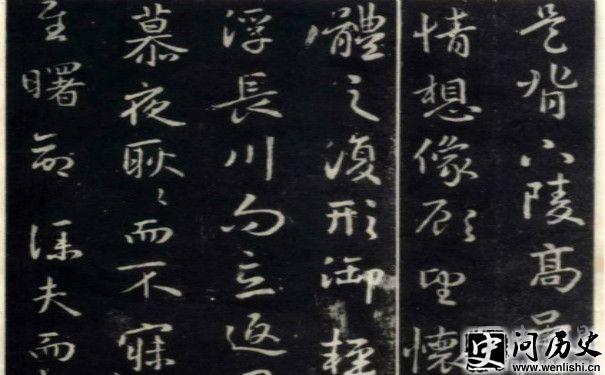 是背下陵高
情想像顧望懷
體之復形御輕
浮長川而忘返
慕夜耿々而不寐
至曙命僕夫而
问历史
www.wenlishi.cn